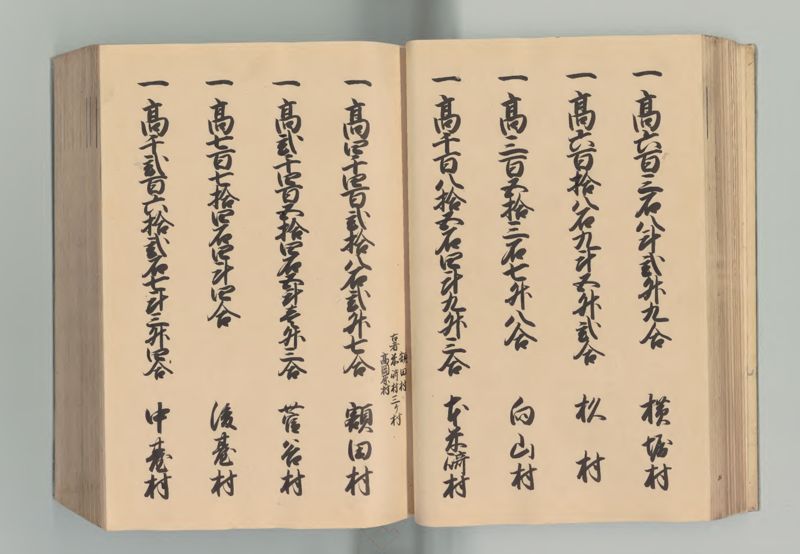 一高六百三石八斗弐升九合 横堀村
一高六百拾八石九斗五升弐合 杉村
一高三百五拾三石七升八合 向山村
一高千百八拾五石四斗九升三合 本米崎村
一高四千四百弐拾八石弐升七合 額田村
額田村
古者本米崎村三ヶ村
高岡原村
一高弐千四百五拾四石五斗壱升三合 菅谷村
一高七百七拾四石四斗四合 後䑓村
一高千弐百六拾弐石七斗三升四合 中䑓村